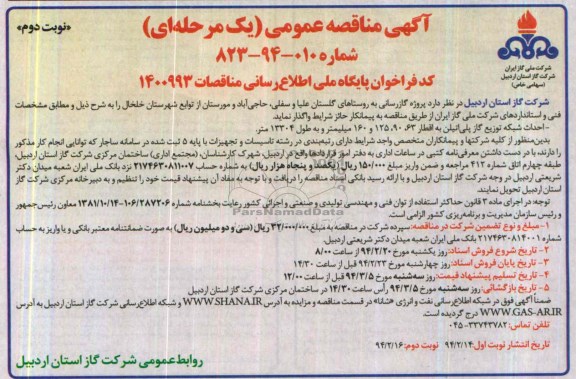 آگهی مناقصه عمومی (یک مرحله‌ای)
«نوبت دوم»
شماره ۰۱۰-۹۴-۸۲۳
کد فراخوان پایگاه ملی اطلاع‌رسانی مناقصات ۱۴۰۰۹۹۳
شرکت ملی گاز ایران
شرکت گاز استان اردبیل
(سهامی خاص)
شرکت گاز استان اردبیل در نظر دارد پروژه گازرسانی به روستاهای گلستان علیا و سفلی، حاجی‌آباد و مورستان از توابع شهرستان خلخال را به شرح ذیل و مطابق مشخصات
فنی و استانداردهای شرکت ملی گاز ایران از طریق مناقصه به پیمانکار حائز شرایط واگذار نماید.
-احداث شبکه توزیع گاز پلی‌اتیلن به اقطار ۶۳، ۹۰، ۱۲۵ و ۱۶۰ میلیمتر و به طول ۱۳۳۰۴ متر.
بدین‌منظور از کلیه شرکتها و پیمانکاران متخصص واجد شرایط دارای رتبه‌بندی در رشته تاسیسات و تجهیزات با پایه ۵ ثبت شده در سامانه ساجار که توانایی انجام کار مذکور
را دارند، با در دست داشتن معرفی‌نامه کتبی در ساعات اداری به دفتر امور قراردادها واقع در اردبیل، شهرک کارشناسان، (مجتمع اداری) ساختمان مرکزی شرکت گاز استان اردبیل،
طبقه چهارم اتاق شماره ۴۱۲ مراجعه و ضمن واریز مبلغ ۱۵۰/۰۰۰ ریال (یکصد و پنجاه هزار ریال) به شماره حساب ۲۱۷۴۶۳۰۸۱۱۰۰۷ نزد بانک ملی ایران شعبه میدان دکتر
شریعتی اردبیل در وجه شرکت گاز استان اردبیل و با ارائه رسید بانکی اسناد مناقصه را دریافت و با توجه به مفاد آن پیشنهاد قیمت خود را تنظیم و به دبیرخانه مرکزی شرکت گاز
استان اردبیل تحویل نمایند.
توجه: در اجرای ماده ۳ قانون حداکثر استفاده از توان فنی و مهندسی تولیدی و صنعتی و اجرائی کشور رعایت بخشنامه شماره ۱۰۶/۲۸۷۲۰۶-۱۳۸۱/۱۰/۱۴ معاون رئیس‌جمهور
و رئیس سازمان مدیریت و برنامه‌ریزی کشور الزامی است.
۱- مبلغ و نوع تضمین شرکت در مناقصه: سپرده شرکت در مناقصه به مبلغ ۳۲/۰۰۰/۰۰۰ ریال (سی و دو میلیون ریال) به صورت ضمانتنامه معتبر بانکی و یا واریز به حساب
شماره ۲۱۷۴۶۳۰۸۱۴۰۰۱ بانک ملی ایران شعبه میدان دکتر شریعتی اردبیل.
۲- تاریخ شروع فروش اسناد: روز یکشنبه مورخ ۹۴/۲/۲۰ از ساعت ۸/۰۰
۳- تاریخ پایان فروش اسناد: روز چهارشنبه مورخ ۹۴/۲/۲۳ قبل از ساعت ۱۴/۳۰
۴- تاریخ تسلیم پیشنهاد قیمت: روز سه‌شنبه مورخ ۹۴/۳/۵ قبل از ساعت ۱۲/۰۰
۵- تاریخ بازگشائی: روز سه‌شنبه مورخ ۹۴/۳/۵ رأس ساعت ۱۴/۳۰ در ساختمان مرکزی شرکت گاز استان اردبیل
ضمناً آگهی فوق در شبکه اطلاع‌رسانی نفت و انرژی «شانا» در قسمت مناقصه و مزایده به آدرس WWW.SHANA.IR و شبکه اطلاع‌رسانی شرکت گاز استان اردبیل به آدرس
WWW.GAS-AR.IR درج گردیده است.
تلفن تماس: ۳۳۷۴۳۷۸۲-۰۴۵
تاریخ انتشار نوبت اول: ۹۴/۲/۱۴ نوبت دوم: ۹۴/۲/۱۶
روابط‌عمومی شرکت گاز استان اردبیل
ParsNamadData